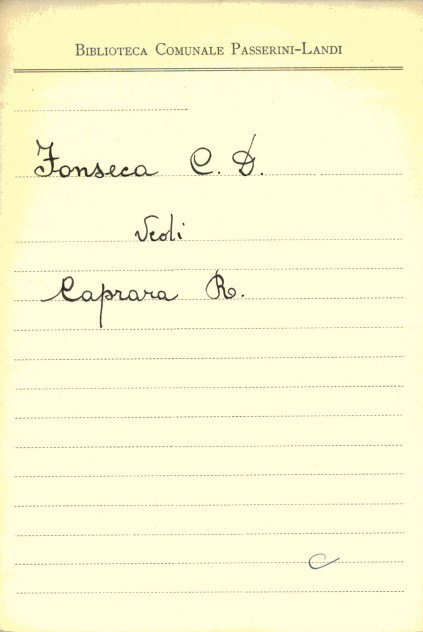 BIBLIOTECA COMUNALE PASSERINI-LANDI
Fonseca C. D.
Vedi
Caprara R.
C